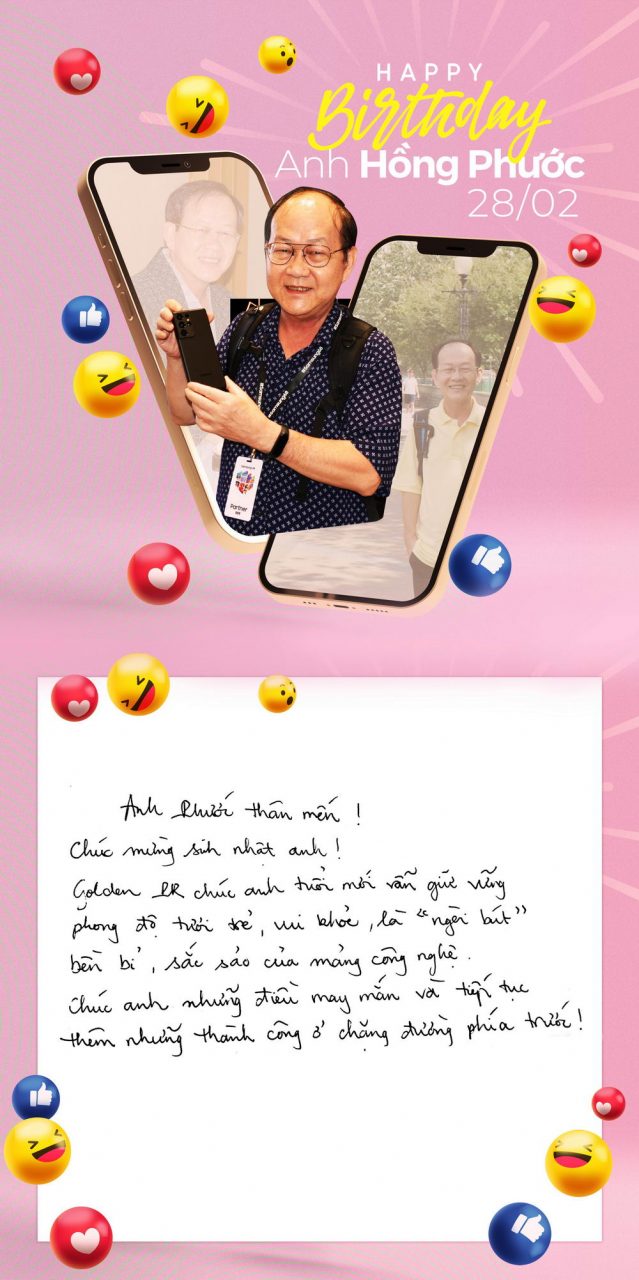 HAPPY
Birthday
Anh Hồng Phước
28/02
Partner
Anh Phước thân mến !
Chúc mừng sinh nhật anh !
Golden PR chúc anh tuổi mới vẫn giữ vững
phong độ tươi trẻ, vui khỏe, là "ngòi bút"
bền bỉ, sắc sảo của mảng công nghệ.
Chúc anh những điều may mắn và tiếp tục
thêm những thành công ở chặng đường phía trước !